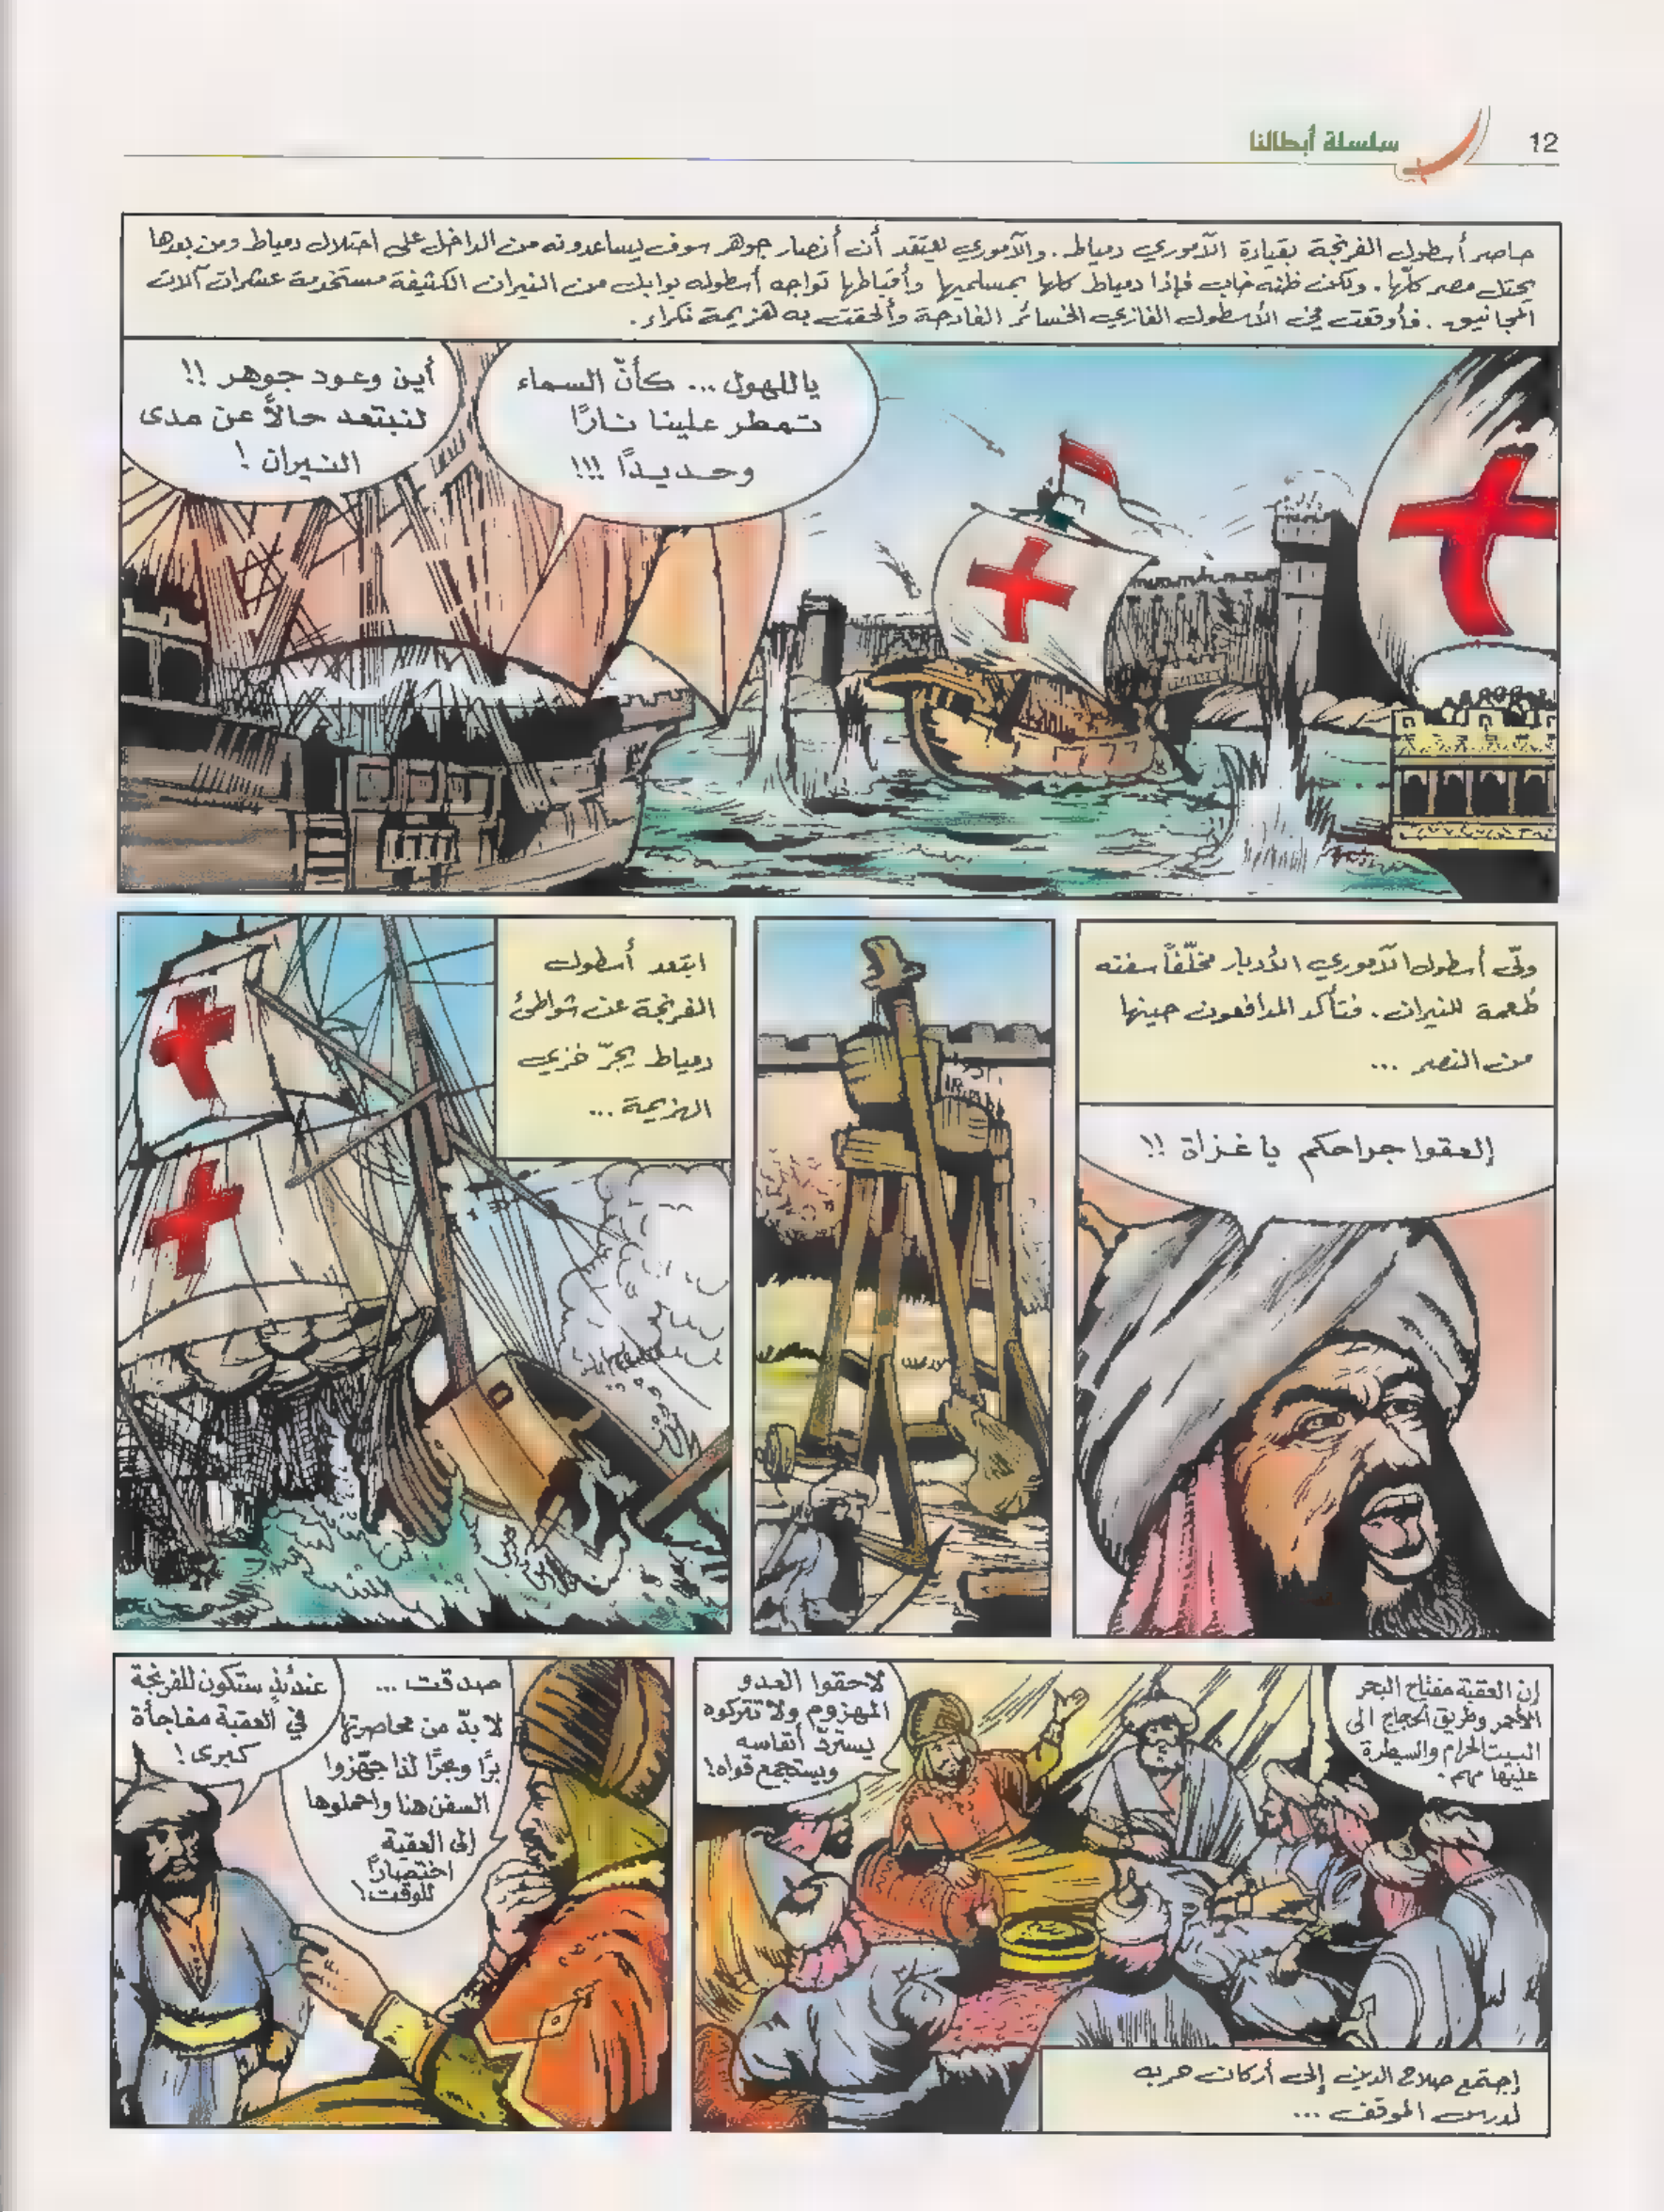 12
سلسلة أبطالنا
حاصر أسطول الفرنجة بقيادة الآموري دمياط. والآموري يعتقد أن أنصار جوهر سوف يساعدونه من الداخل على احتلال دمياط ومن بعدها
يحتل مصر كلّها. ولكن ظنه خاب فإذا دمياط كلها بمسلميها وأقباطها تواجه أسطوله بوابل من النيران الكثيفة مستخدمة عشرات آلات
المجانيق. فأوقعت في الأسطول الغازي الخسائر الفادحة وألحقت به هزيمة نكراء.
ياللهول... كأنّ السماء
تمطر علينا نارًا
وحديدًا !!!
أين وعود جوهر !!
لنبتعد حالاً عن مدى
النيران !
ولّى أسطول الآموري الأدبار مخلّفاً سفنه
طُعمة للنيران. فتأكد المدافعون حينها
من النصر ...
إلعقوا جراحكم يا غزاة !!
ابتعد أسطول
الفرنجة عن شواطئ
دمياط يجرّ خزي
الهزيمة ...
إن العقبة مفتاح البحر
الأحمر وطريق الحجاج الى
البيت الحرام والسيطرة
عليها مهم.
لاحقوا العدو
المهزوم ولا تتركوه
يستردّ أنفاسه
ويستجمع قواه!
إجتمع صلاح الدين إلى أركان حربه
لدرس الموقف ...
صدقت ...
لا بدّ من محاصرتها
برًا وبحرًا لذا جهّزوا
السفن هنا واحملوها
إلى العقبة
اختصارًا
للوقت!
عندئذٍ ستكون للفرنجة
في العقبة مفاجأة
كبرى!